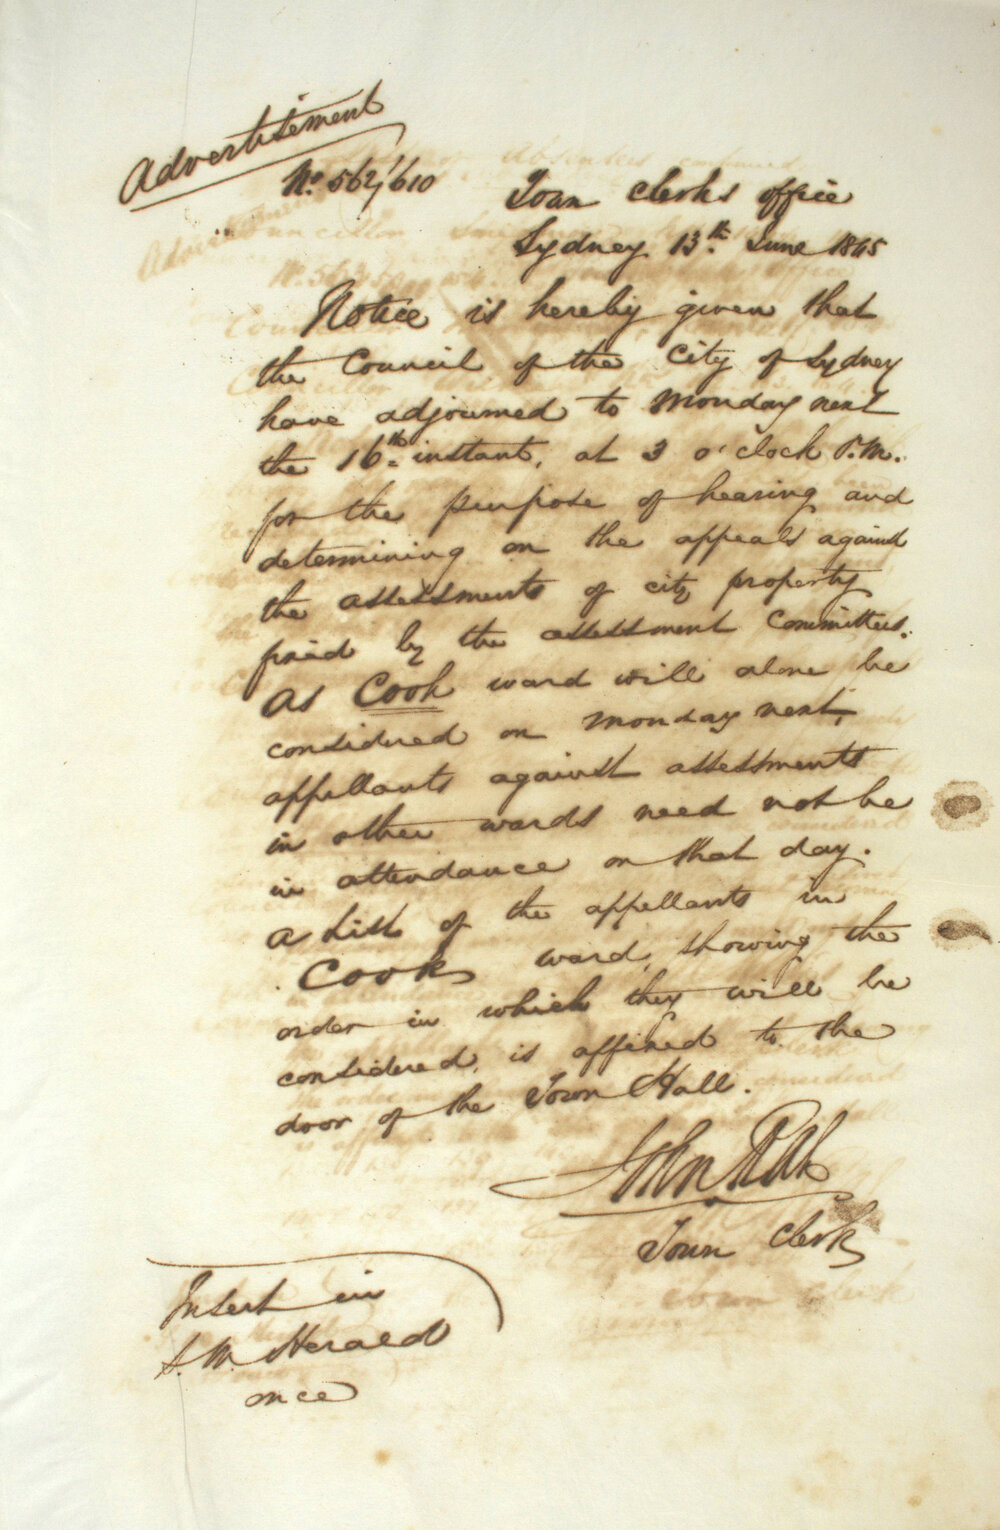 Advertisement
No. 562/610
Town Clerks office
Sydney 13th. June 1845
Notice is hereby given that
the Council of the City of Sydney
have adjourned to Monday next
the 16th. instant, at 3 o'clock P.M.
for the purpose of hearing and
determining on the appeals against
the assessments of city property
by the assessment Committees.
As Cook ward will alone be
considered on Monday next,
appellants against assessments
in other wards need not be
in attendance on that day.
a List of the appellants in
Cook ward, showing the
order in which they will be
considered, is affixed to the
door of the Town Hall.
John Rae
Town Clerk
Insert in
S. M. Herald
once